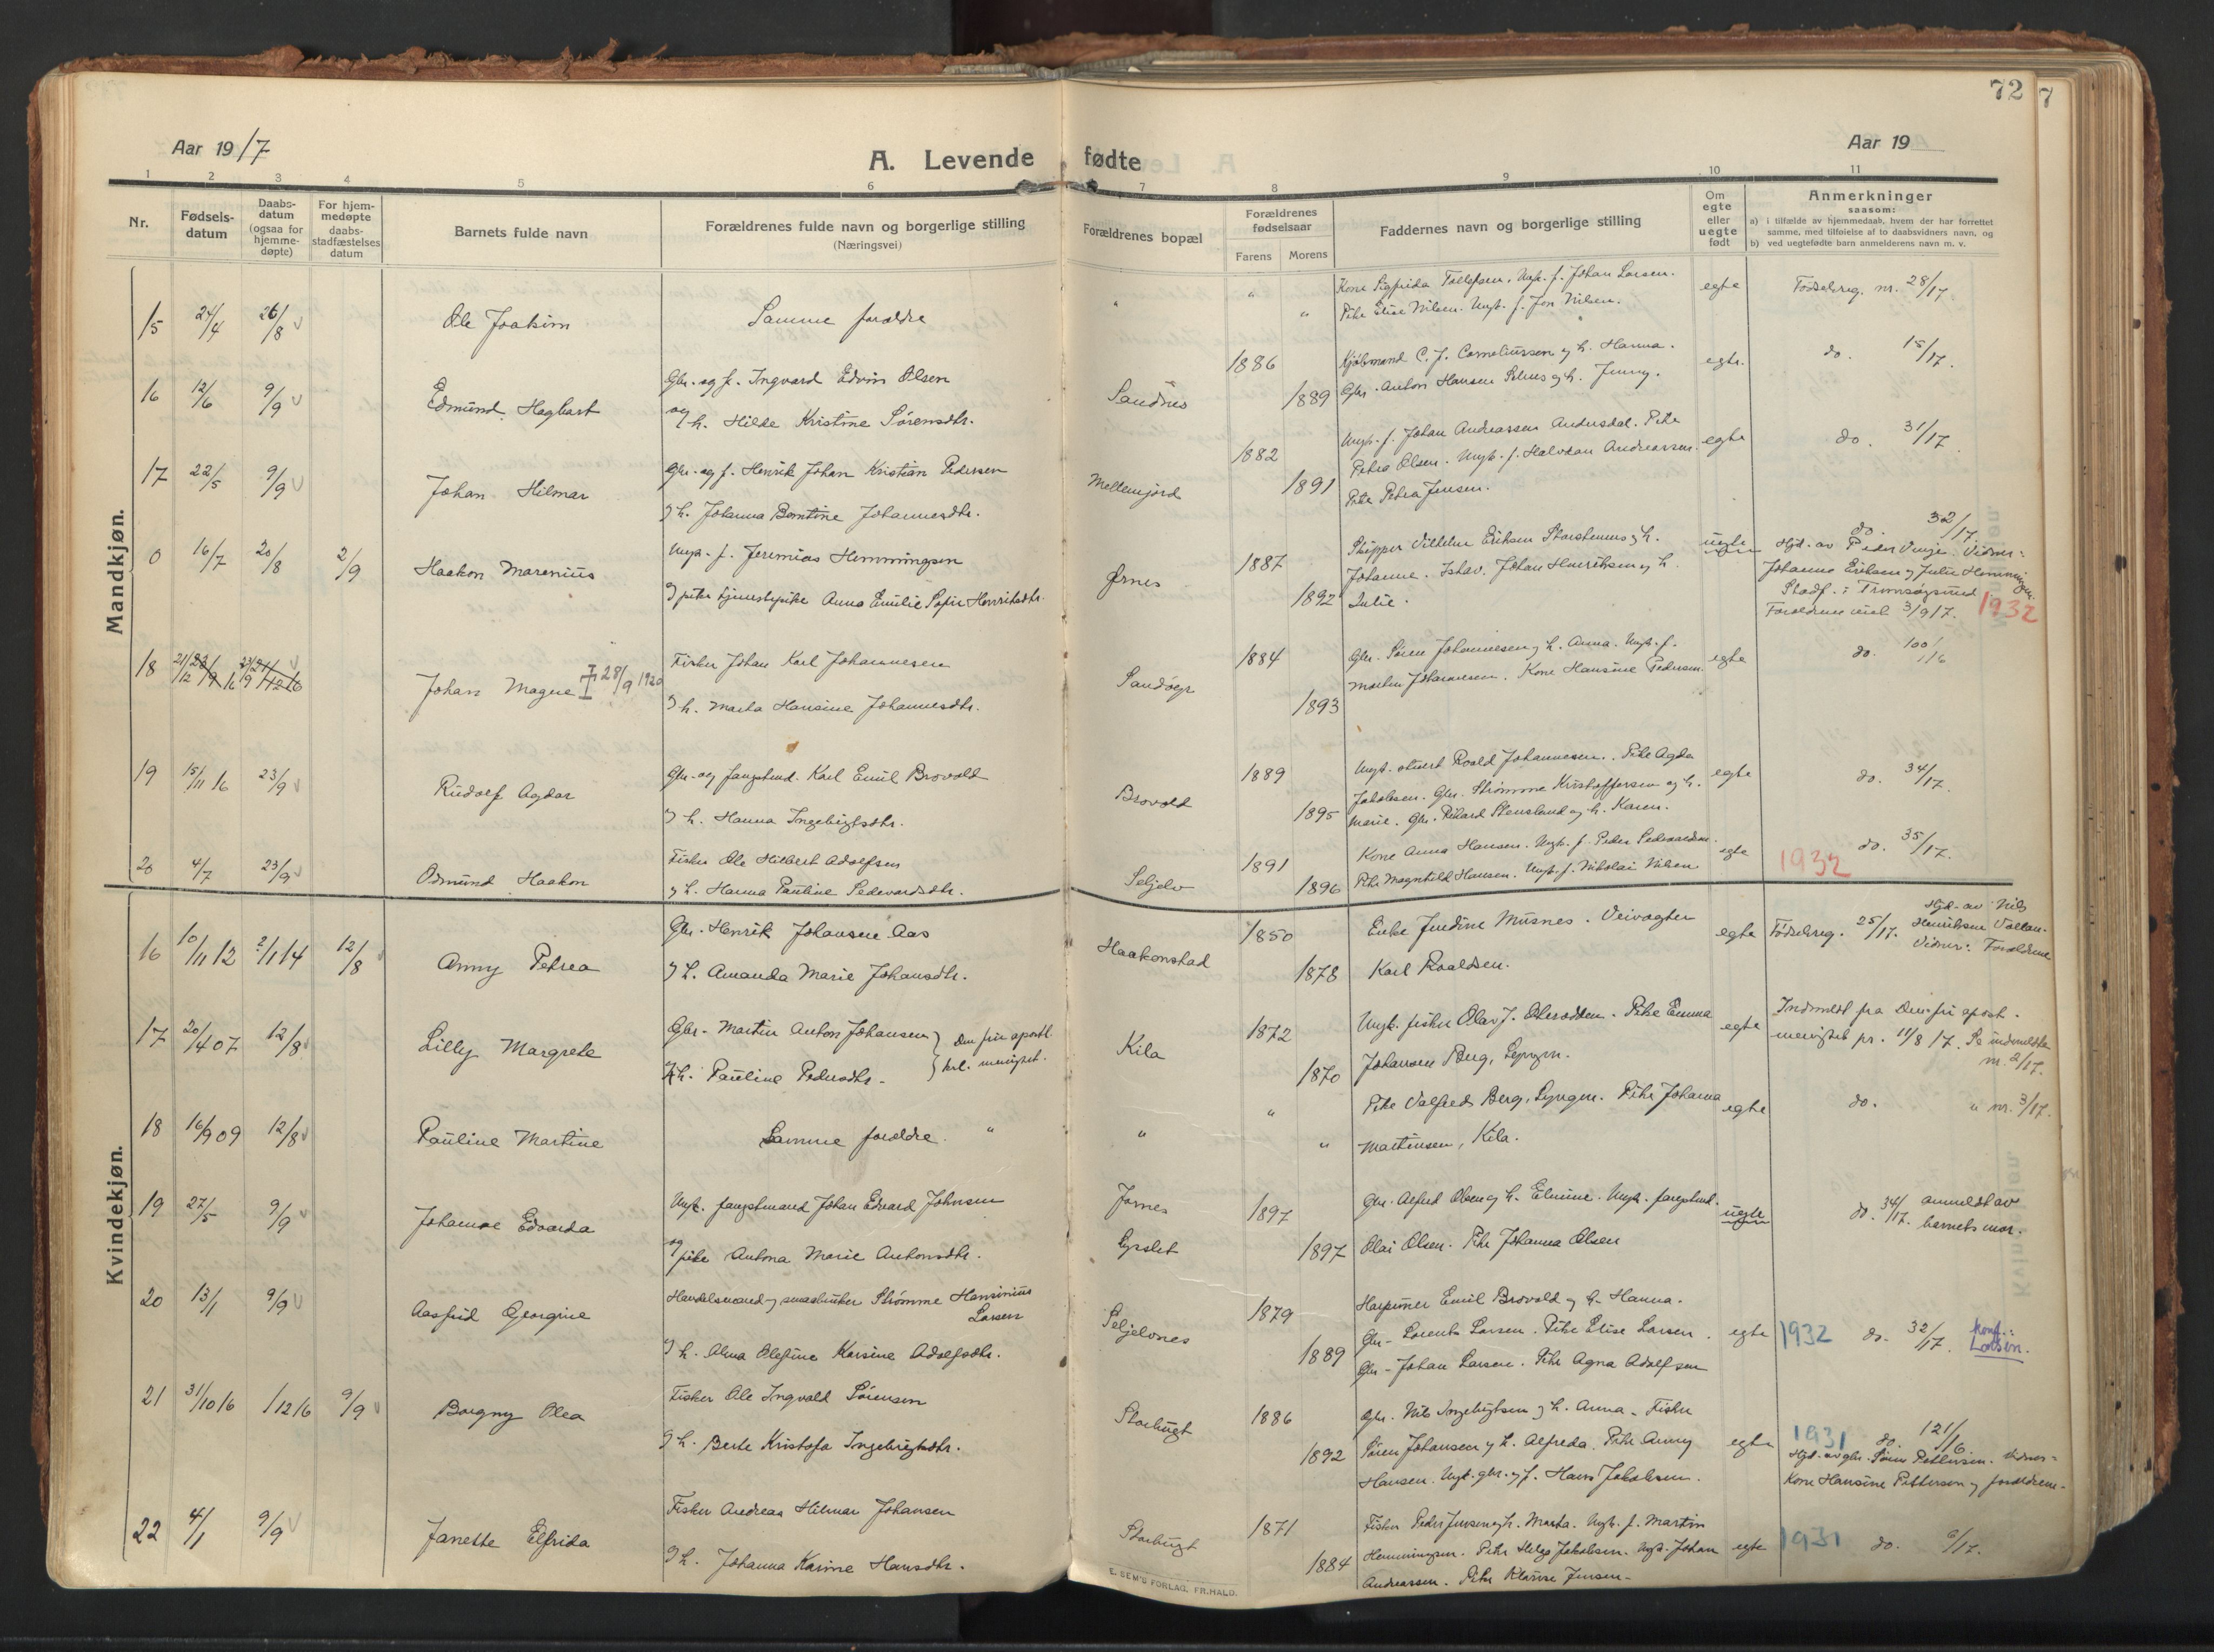 72 7
Aar 1917
A. Levende fødte
Aar 19
1 2 3 4 5 6 7 8 9 10 11
Nr.
Fødsels-
datum
Daabs-
datum
(ogsaa for
hjemme-
døpte)
For hjem-
medøpte
daabs-
stadfæstelses
datum
Barnets fulde navn
Forældrenes fulde navn og borgerlige stilling
(Næringsvei)
Forældrenes bopæl
Forældrenes
fødselsaar
Farens Morens
Faddernes navn og borgerlige stilling
Om
egte
eller
uegte
født
Anmerkninger
saasom:
a) i tilfælde av hjemmedaab, hvem der har forrettet
samme, med tilføielse af to daabsvidners navn, og
b) ved uegtefødte barn anmelderens navn m. v.
Mandkjøn.
15 24/4 26/8 Ole Joakim Samme forældre " " "
Kone Sigfrida Tollefsen. Ungk. f. Johan Larsen.
Pike Elise Nilsen. Ungk. f. Jon Nilsen.
egte Fødselsreg. nr. 28/17.
16 12/6 9/9 Edmund Hagbart
Gbr. og f. Ingvard Edvin Olsen
og h. Hilde Kristine Sørensdtr.
Sandnes 1886 1889
Kjøbmand C. J. Corneliussen og h. Hanna.
Gbr. Anton Hansen Selnes og h. Jenny.
egte. do. 15/17.
17 22/5 9/9 Johan Hilmar
Gbr. og f. Henrik Johan Kristian Pedersen
og h. Johanna Berntine Johannesdtr.
Mellemjord 1882 1891
Ungk. f. Johan Andreassen Andersdal. Pike
Petra Olsen. Ungk. f. Halvdan Andreassen.
Pike Petra Jensen.
egte do. 31/17.
0 16/7 20/8 2/9 Haakon Marenius
Ungk. f. Jeremias Hemmingsen
og pike tjenestepike Anna Emilie Sofie Henriksdtr.
Ørnes 1887 1892
Skipper Vilhelm Eriksen Storstennes og h.
Johanne. Ishav. Johan Henriksen og h.
Julie.
uegte do. 32/17.
Hjd. av Peder Vinje. Vidner:
Johanna Eriksen og Julie Hemmingsen.
Stadf. i Tromsøysund.
Forældrene viet 3/9 17. 1932
18 21/12 23/9 16 23/9 21/12 16 Johan Magne ‡ 28/9 1920
Fisker Johan Karl Johannesen
og h. Marta Hansine Johannesdtr.
Sandøyr 1884 1893
Gbr. Søren Johannesen og h. Anna. Ungk. f.
Martin Johannesen. Kone Hansine Pedersen.
egte do. 100/16
19 15/11 16 23/9 Rudolf Agdar
Gbr. og fangstmd. Karl Emil Brovold
og h. Hanna Ingebrigtsdtr.
Brovold 1889 1895
Ungk. stuert Roald Johannesen. Pike Agda
Jakobsen. Gbr. Strømme Kristoffersen og h.
Marie. Gbr. Rikard Stensland og h. Karen.
egte do. 34/17.
20 4/7 23/9 Odmund Haakon
Fisker Ole Hilbert Adolfsen
og h. Hanna Pauline Pedevardsdtr.
Seljelv 1891 1896
Kone Anna Hansen. Ungk. f. Peder Pedevardsen.
Pike Magnhild Hansen. Ungk. f. Nikolai Nilsen
egte 1932 do. 35/17.
Kvindekjøn.
16 10/11 12 2/1 14 12/8 Anny Petrea
Gbr. Henrik Johansen Aas
og h. Amanda Marie Johansdtr.
Haakonstad 1850 1878
Enke Jendine Musnes. Veivogter
Karl Roaldsen.
egte Fødselsreg. 25/17. Hjd. av Nils
Henriksen Vollan.
Vidner: Forældrene
17 20/4 07 12/8 Lilly Margrete
Gbr. Martin Anton Johansen
og h. Pauline Pedersdtr.
Den frie apostl.
krl. menighet.
Kila 1872 1870
Ungk. fisker Olav J. Olsrodden. Pike Emma
Johansen Berg, Lyngen.
egte Indmeldt fra Den fri apost.
menighet pr. 11/8 17. Se indmeldte
nr. 2/17.
18 16/9 09 12/8 Pauline Martine Samme forældre. " " " "
Pike Valfred Berg, Lyngen. Pike Johanna
Martinsen, Kila.
egte do. " nr. 3/17.
19 27/5 9/9 Johanne Edvarda
Ungk. fangstmand Johan Edvard Johnsen
og pike Antona Marie Antonsdtr.
Jornes 1897 1897
Gbr. Alfred Olsen og h. Elmine. Ungk. fangstmd.
Olai Olsen. Pike Johanna Olsen
uegte do. 34/17. anmeldt av
barnets mor.
20 13/1 9/9 Aasfrid Georgine
Handelsmand og smaabruker Strømme Hansinius
Larsen
og h. Alma Olefine Karsine Adolfsdtr.
Seljelvnes 1879 1889
Harpuner Emil Brovold og h. Hanna.
Gbr. Lorents Larsen. Pike Elise Larsen.
Gbr. Johan Larsen. Pike Agna Adolfsen
egte 1932 do. 32/17. Konf.:
Larsen.
21 31/10 16 /12 16 9/9 Borgny Olea
Fisker Ole Ingvald Sørensen
og h. Berte Kristofa Ingebrigtsdtr.
Storbugt 1886 1892
Gbr. Nils Ingebrigtsen og h. Anna. Fisker
Søren Johansen og h. Alfreda. Pike Anny
Hansen. Ungk. gbr. og f. Hans Jakobsen.
egte 1931 do. 121/16.
Hjd. av gbr. Søren Pettersen. Vidner:
Kone Hansine Pettersen og forældrene.
22 4/1 9/9 Janette Elfrida
Fisker Andreas Hilmar Johansen
og h. Johanna Karine Hansdtr.
Storbugt 1871 1884
Fisker Peder Jensen og h. Marta. Ungk. f. Martin
Hemmingsen. Pike Helga Jakobsen. Ungk. Johan
Andreassen. Pike Klarise Jensen.
egte 1931 do. 6/17.
E. SEM'S FORLAG, FR.HALD.